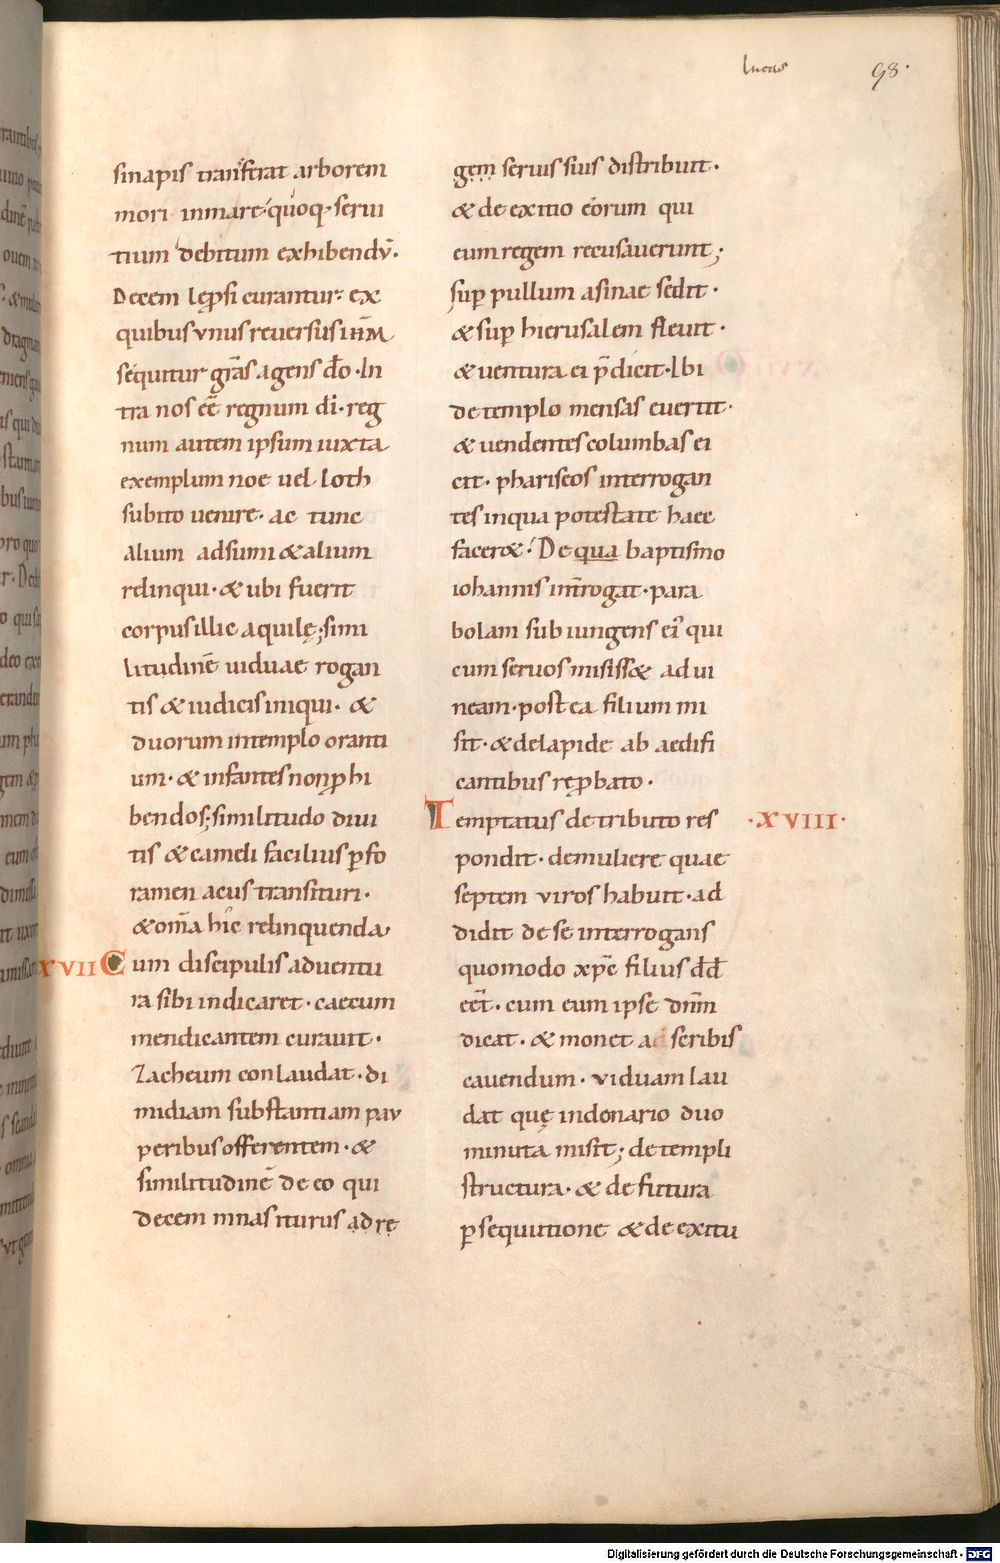 lucas 98.
sinapis transferat arborem
mori inmare quoq; serui
tium debitum exhibendū.
Decem lep̄si curantur ex
quibus vnus reuersus ihm
sequitur grās agens dō. In
tra nos eē regnum dī. reg
num autem ipsum iuxta
exemplum noe uel loth
subito uenire. ac tunc
alium adsumi & alium
relinqui. & ubi fuerit
corpus illic aquilę; simi
litudinē uiduae rogan
tis & iudicis iniqui. &
duorum intemplo oranti
um. & infantes non ꝓhi
bendos; similitudo diui
tis & cameli facilius ꝑ fo
ramen acus transituri.
& om̄a hic relinquenda
XVII Cum discipulis aduentu
ra sibi indicaret. caecum
mendicantem curauit.
Zacheum conlaudat. di
midiam substantiam pau
peribus offerentem. &
similitudinē de eo qui
decem mnas iturus ad rę
gem seruis suis distribuit.
& de exitio eorum qui
eum regem recusauerunt;
suꝑ pullum asinae sedit.
& suꝑ hierusalem fleuit.
& uentura ei p̄dicit. Ibi
de templo mensas euertit.
& uendentes columbas ei
cit. phariseos interrogan
tes inqua potestate haec
facer&. De qua baptismo
iohannis int̄rogat. para
bolam subiungens ei qui
cum seruos misiss& ad ui
neam. postea filium mi
sit. & delapide ab aedifi
cantibus reꝓbato.
Temptatus de tributo res .XVIII.
pondit. demuliere quae
septem viros habuit. ad
didit de se interrogans
quomodo xp̄c filius dd̄
eēt. cum eum ipse dn̄m
dicat. & monet a scribis
cauendum. viduam lau
dat quę indonario duo
minuta misit; de templi
structura. & de futura
ꝑsequutione & de exitu
Digitalisierung gefördert durch die Deutsche Forschungsgemeinschaft - DFG